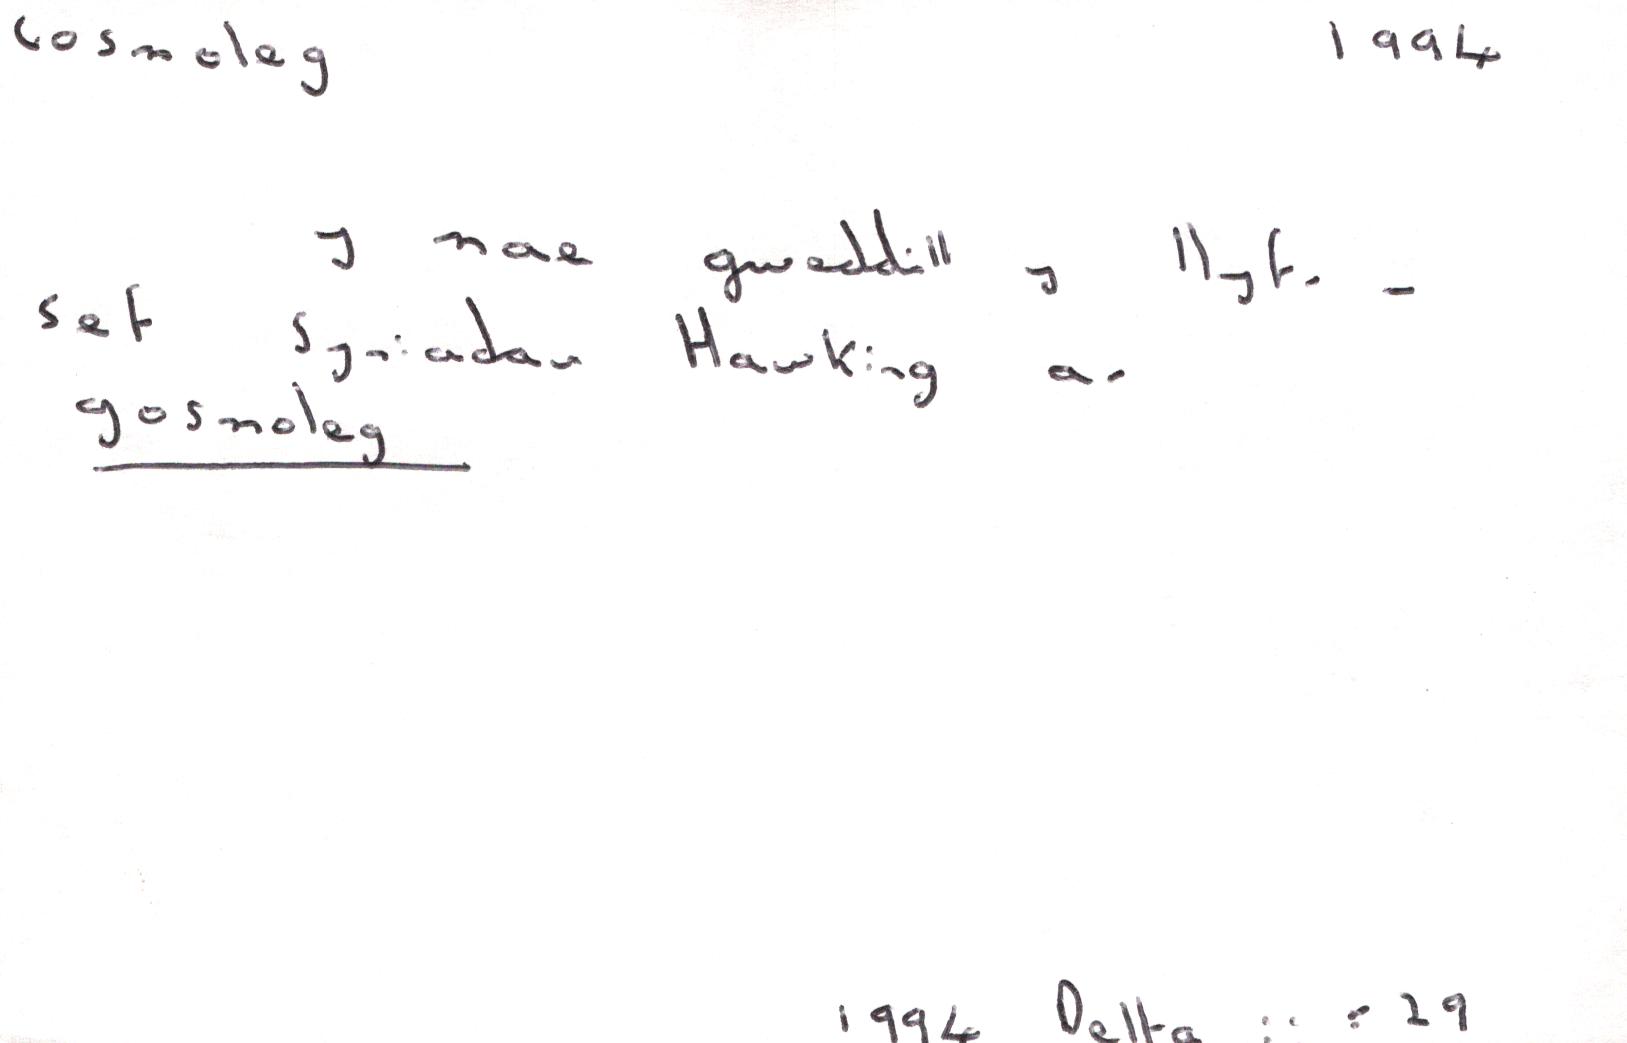 Cosmoleg 1994
y mae gweddill y llyfr -
sef syniadau Hawking ar
gosmoleg
1994 Delta ii : 29